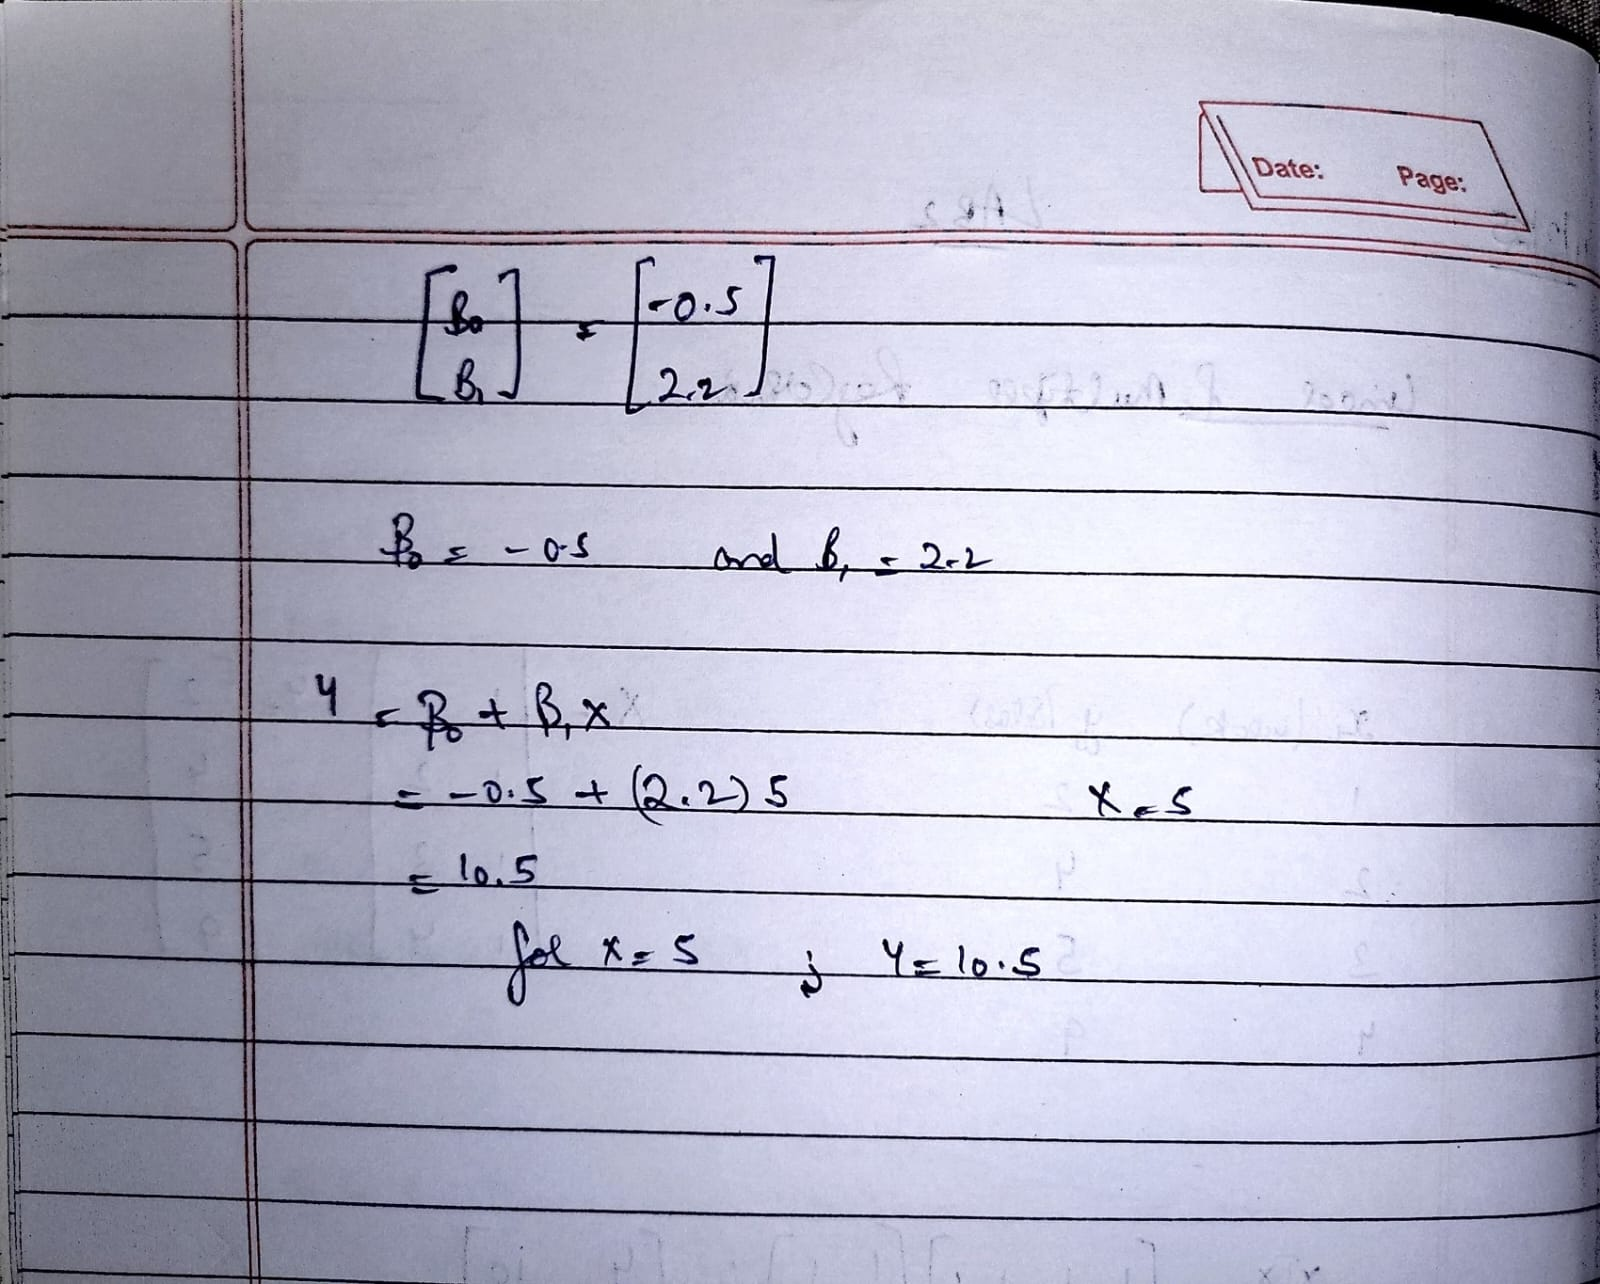 Date: Page:
[B₀ B₁] = [-0.5 2.2]
β₀ = -0.5 and β₁ = 2.2
y = β₀ + β₁x
= -0.5 + (2.2) 5 x = 5
= 10.5
for x = 5 ; y = 10.5